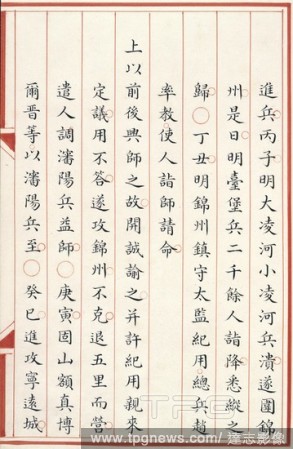 進兵丙子明大凌河小凌河兵潰遂圍錦
州是日明臺堡兵二千餘人詣降悉縱之
歸○丁丑明錦州鎮守太監紀用總兵趙
率教使人詣師請命
上以前後興師之故開誠諭之并許紀用親來
定議用不答遂攻錦州不克退五里而營
遣人調瀋陽兵益師○庚寅固山額真博
爾晉等以瀋陽兵至○癸巳進攻寧遠城
TPG
www.tpgnews.com/達志影像